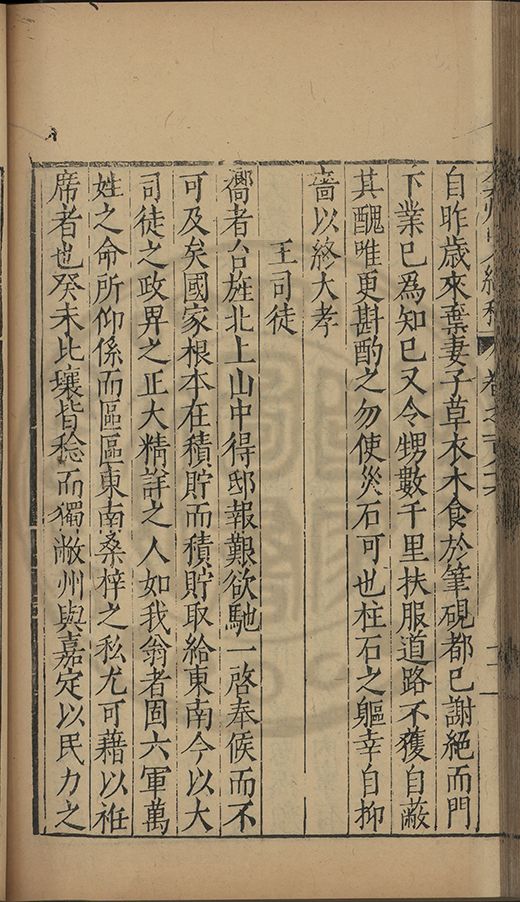 自昨歲來棄妻子草衣木食於筆硯都已謝絕而門
下業已爲知已又令甥數千里扶服道路不獲自蔽
其醜唯更斟酌之勿使災石可也柱石之軀幸自抑
嗇以終大孝
王司徒
嚮者台旌北上山中得邸報艱欲馳一啓奉候而不
可及矣國家根本在積貯而積貯取給東南今以大
司徒之政畀之正大精詳之人如我翁者固六軍萬
姓之命所仰係而區區東南桑梓之私尤可藉以袵
席者也癸未比壤皆稔而獨敝州與嘉定以民力之